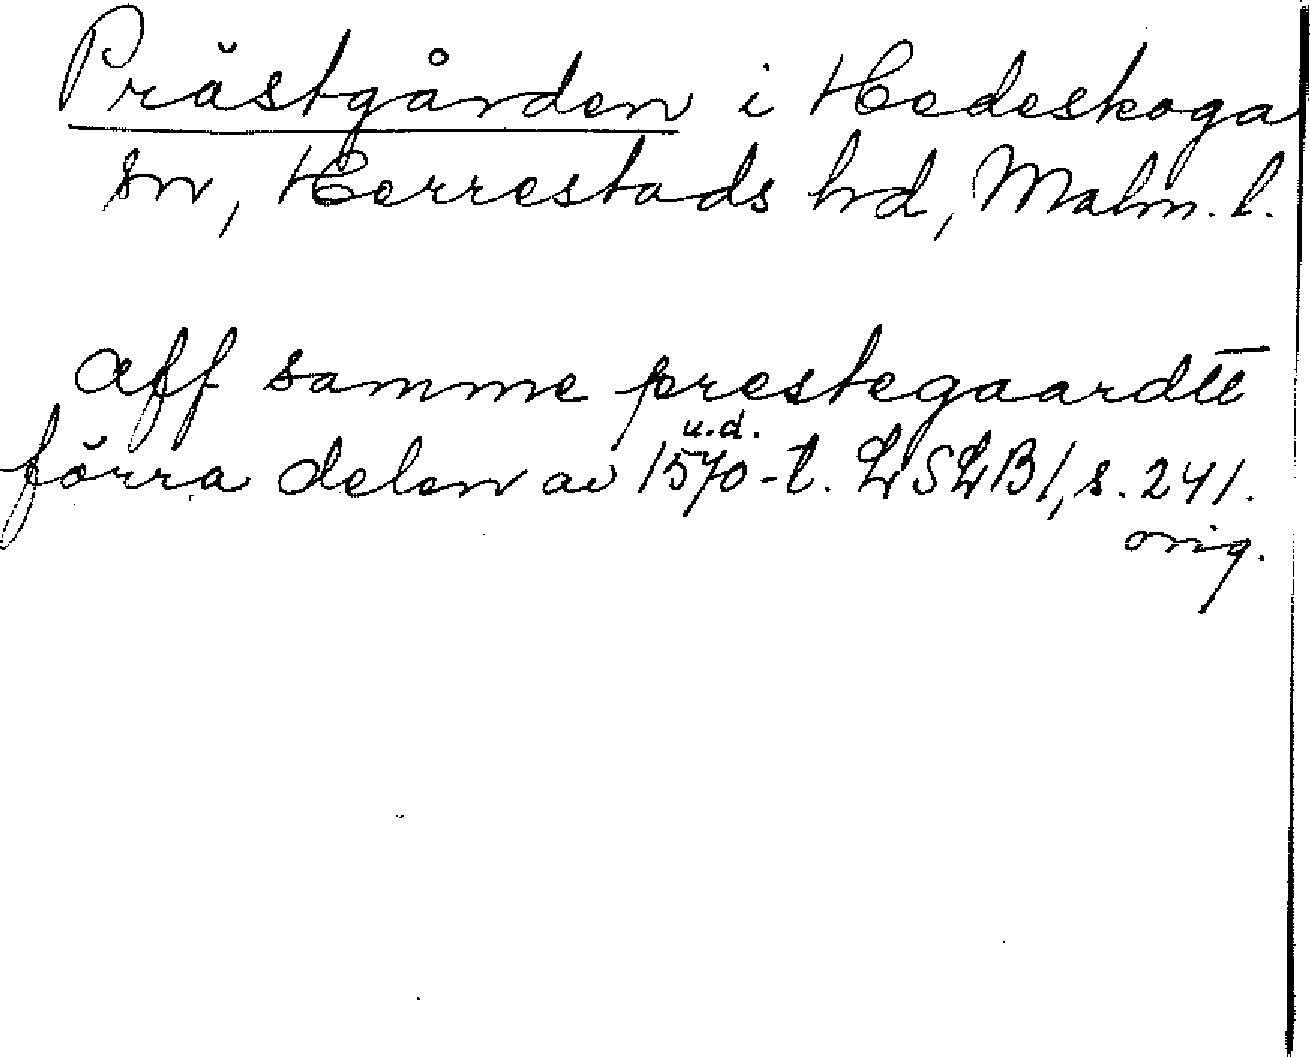 Prästgården i Hedeskoga
sn, Herrestads hd, Malm. l.
aff samme prestegaardtē
u.d.
förra delen av 1570-t. LSLB 1, s. 241.
orig.